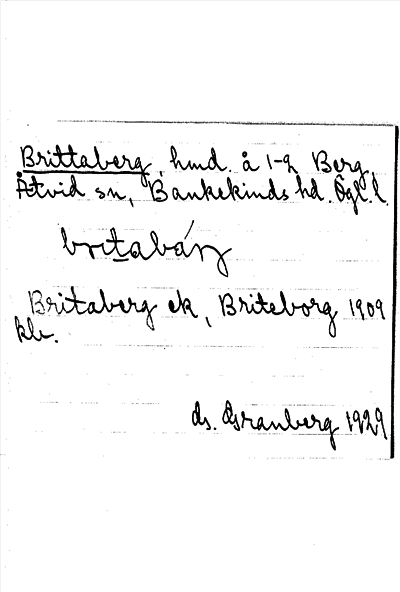 Brittaberg, hmd. å 1-2 Berg,
Åtvid sn, Bankekinds hd. Ögl. l.
britabárj
Britaberg ek, Briteborg 1909
kb.
ds. Granberg 1929